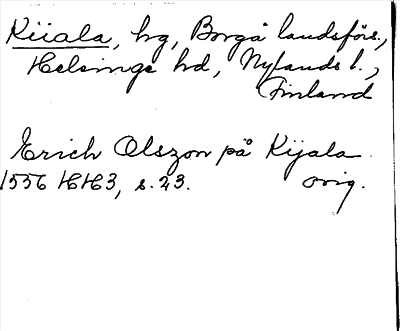 Kiiala, hg, Borgå landsförs.,
Helsinge hd, Nylands l.,
Finland
Erich Olszon på Kijala.
1556 HH3, s. 23. orig.